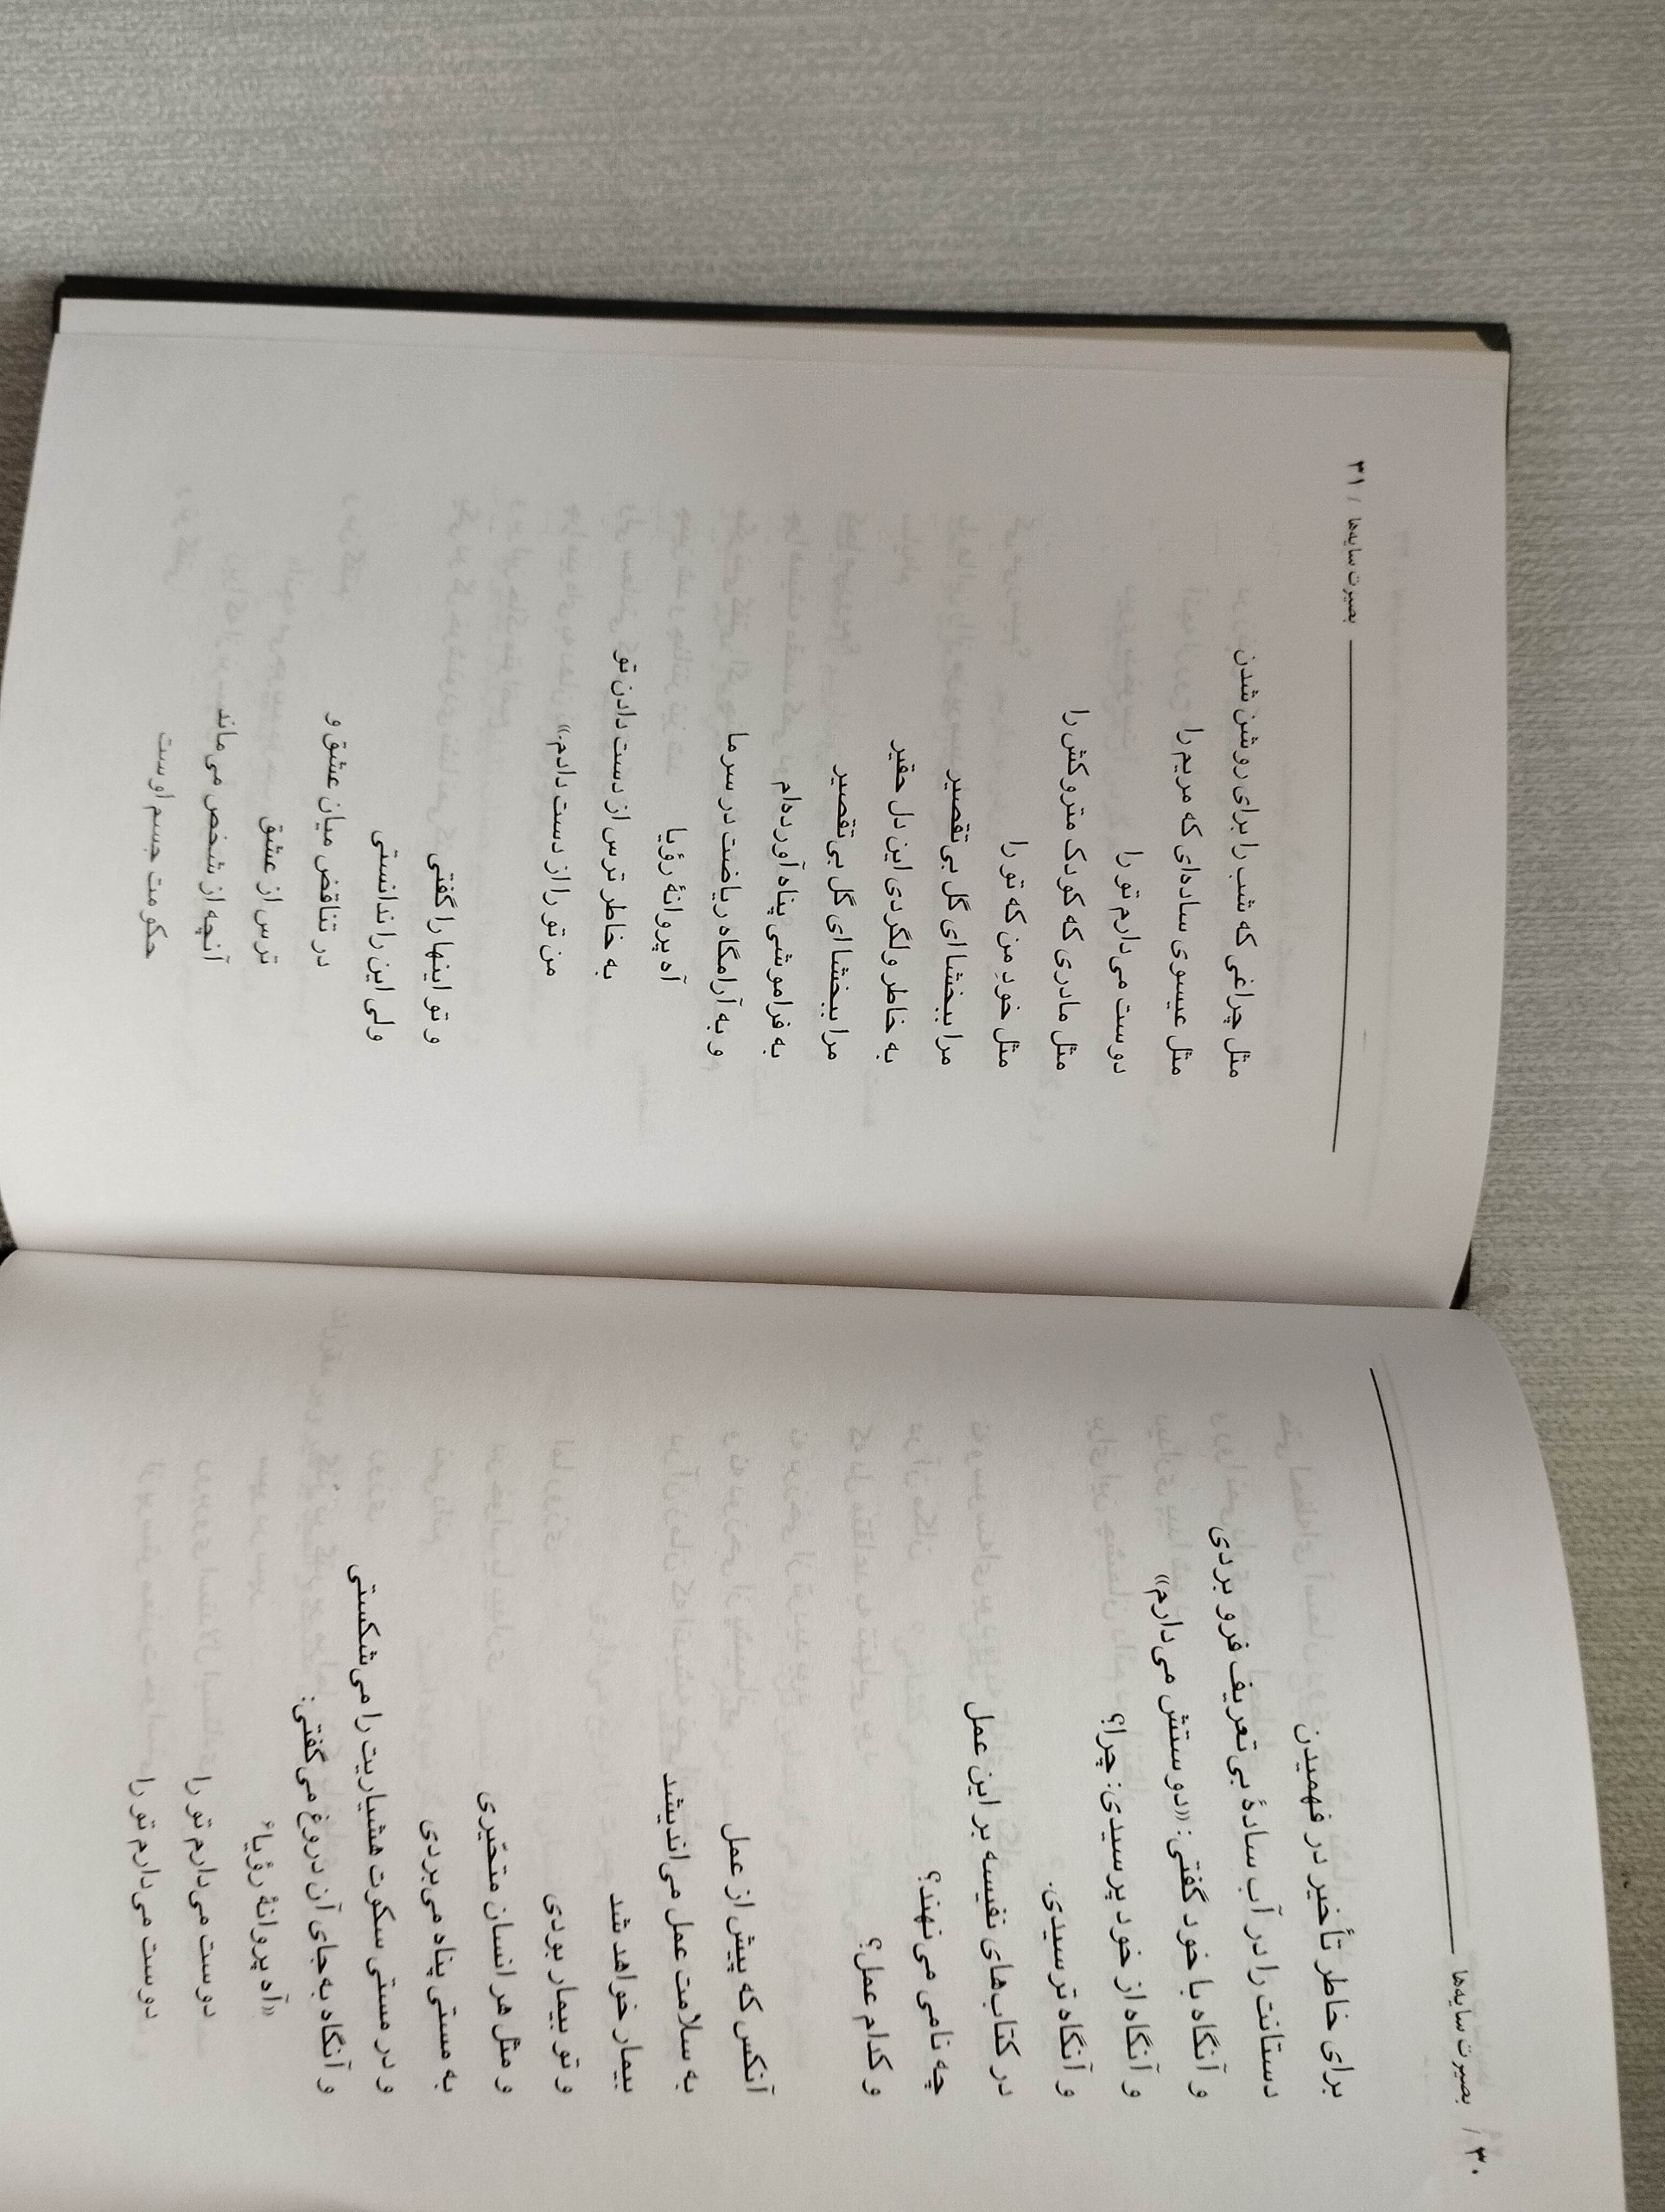 ۳۰ / بصیرت سایه‌ها
برای خاطر تأخیر در فهمیدن
دستانت را در آب سادهٔ بی تعریف فرو بردی
و آنگاه با خود گفتی: «دوستش می‌دارم»
و آنگاه از خود پرسیدی: چرا؟
و آنگاه ترسیدی.
در کتاب‌های نفیسه بر این عمل
چه نامی می‌نهند؟
و کدام عمل؟
آنکس که پیش از عمل
به سلامت عمل می‌اندیشد
بیمار خواهد شد
و تو بیمار بودی
و مثل هر انسان متحّیری
به مستی پناه می‌بردی
و در مستی سکوت هشیاریت را می‌شکستی
و آنگاه به جای آن دروغ می‌گفتی:
«آه پروانهٔ رؤیا!
دوست می‌دارم تو را
دوست می‌دارم تو را
بصیرت سایه‌ها / ۳۱
مثل چراغی که شب را برای روشن شدن
مثل عیسوی ساده‌ای که مریم را
دوست می‌دارم تو را
مثل مادری که کودک متروکش را
مثل خودِ من که تو را
مرا ببخشا ای گل بی‌تقصیر
به خاطر ولگردی این دل حقیر
مرا ببخشا ای گل بی‌تقصیر
به فراموشی پناه آورده‌ام
و به آرامگاه ریاضت در سرما
آه پروانهٔ رؤیا
به خاطر ترس از دست دادن تو
من تو را از دست دادم.»
و تو اینها را گفتی
ولی این را ندانستی
در تناقض میان عشق و
ترس از عشق
آنچه از شخص می‌ماند
حکومت جسم اوست